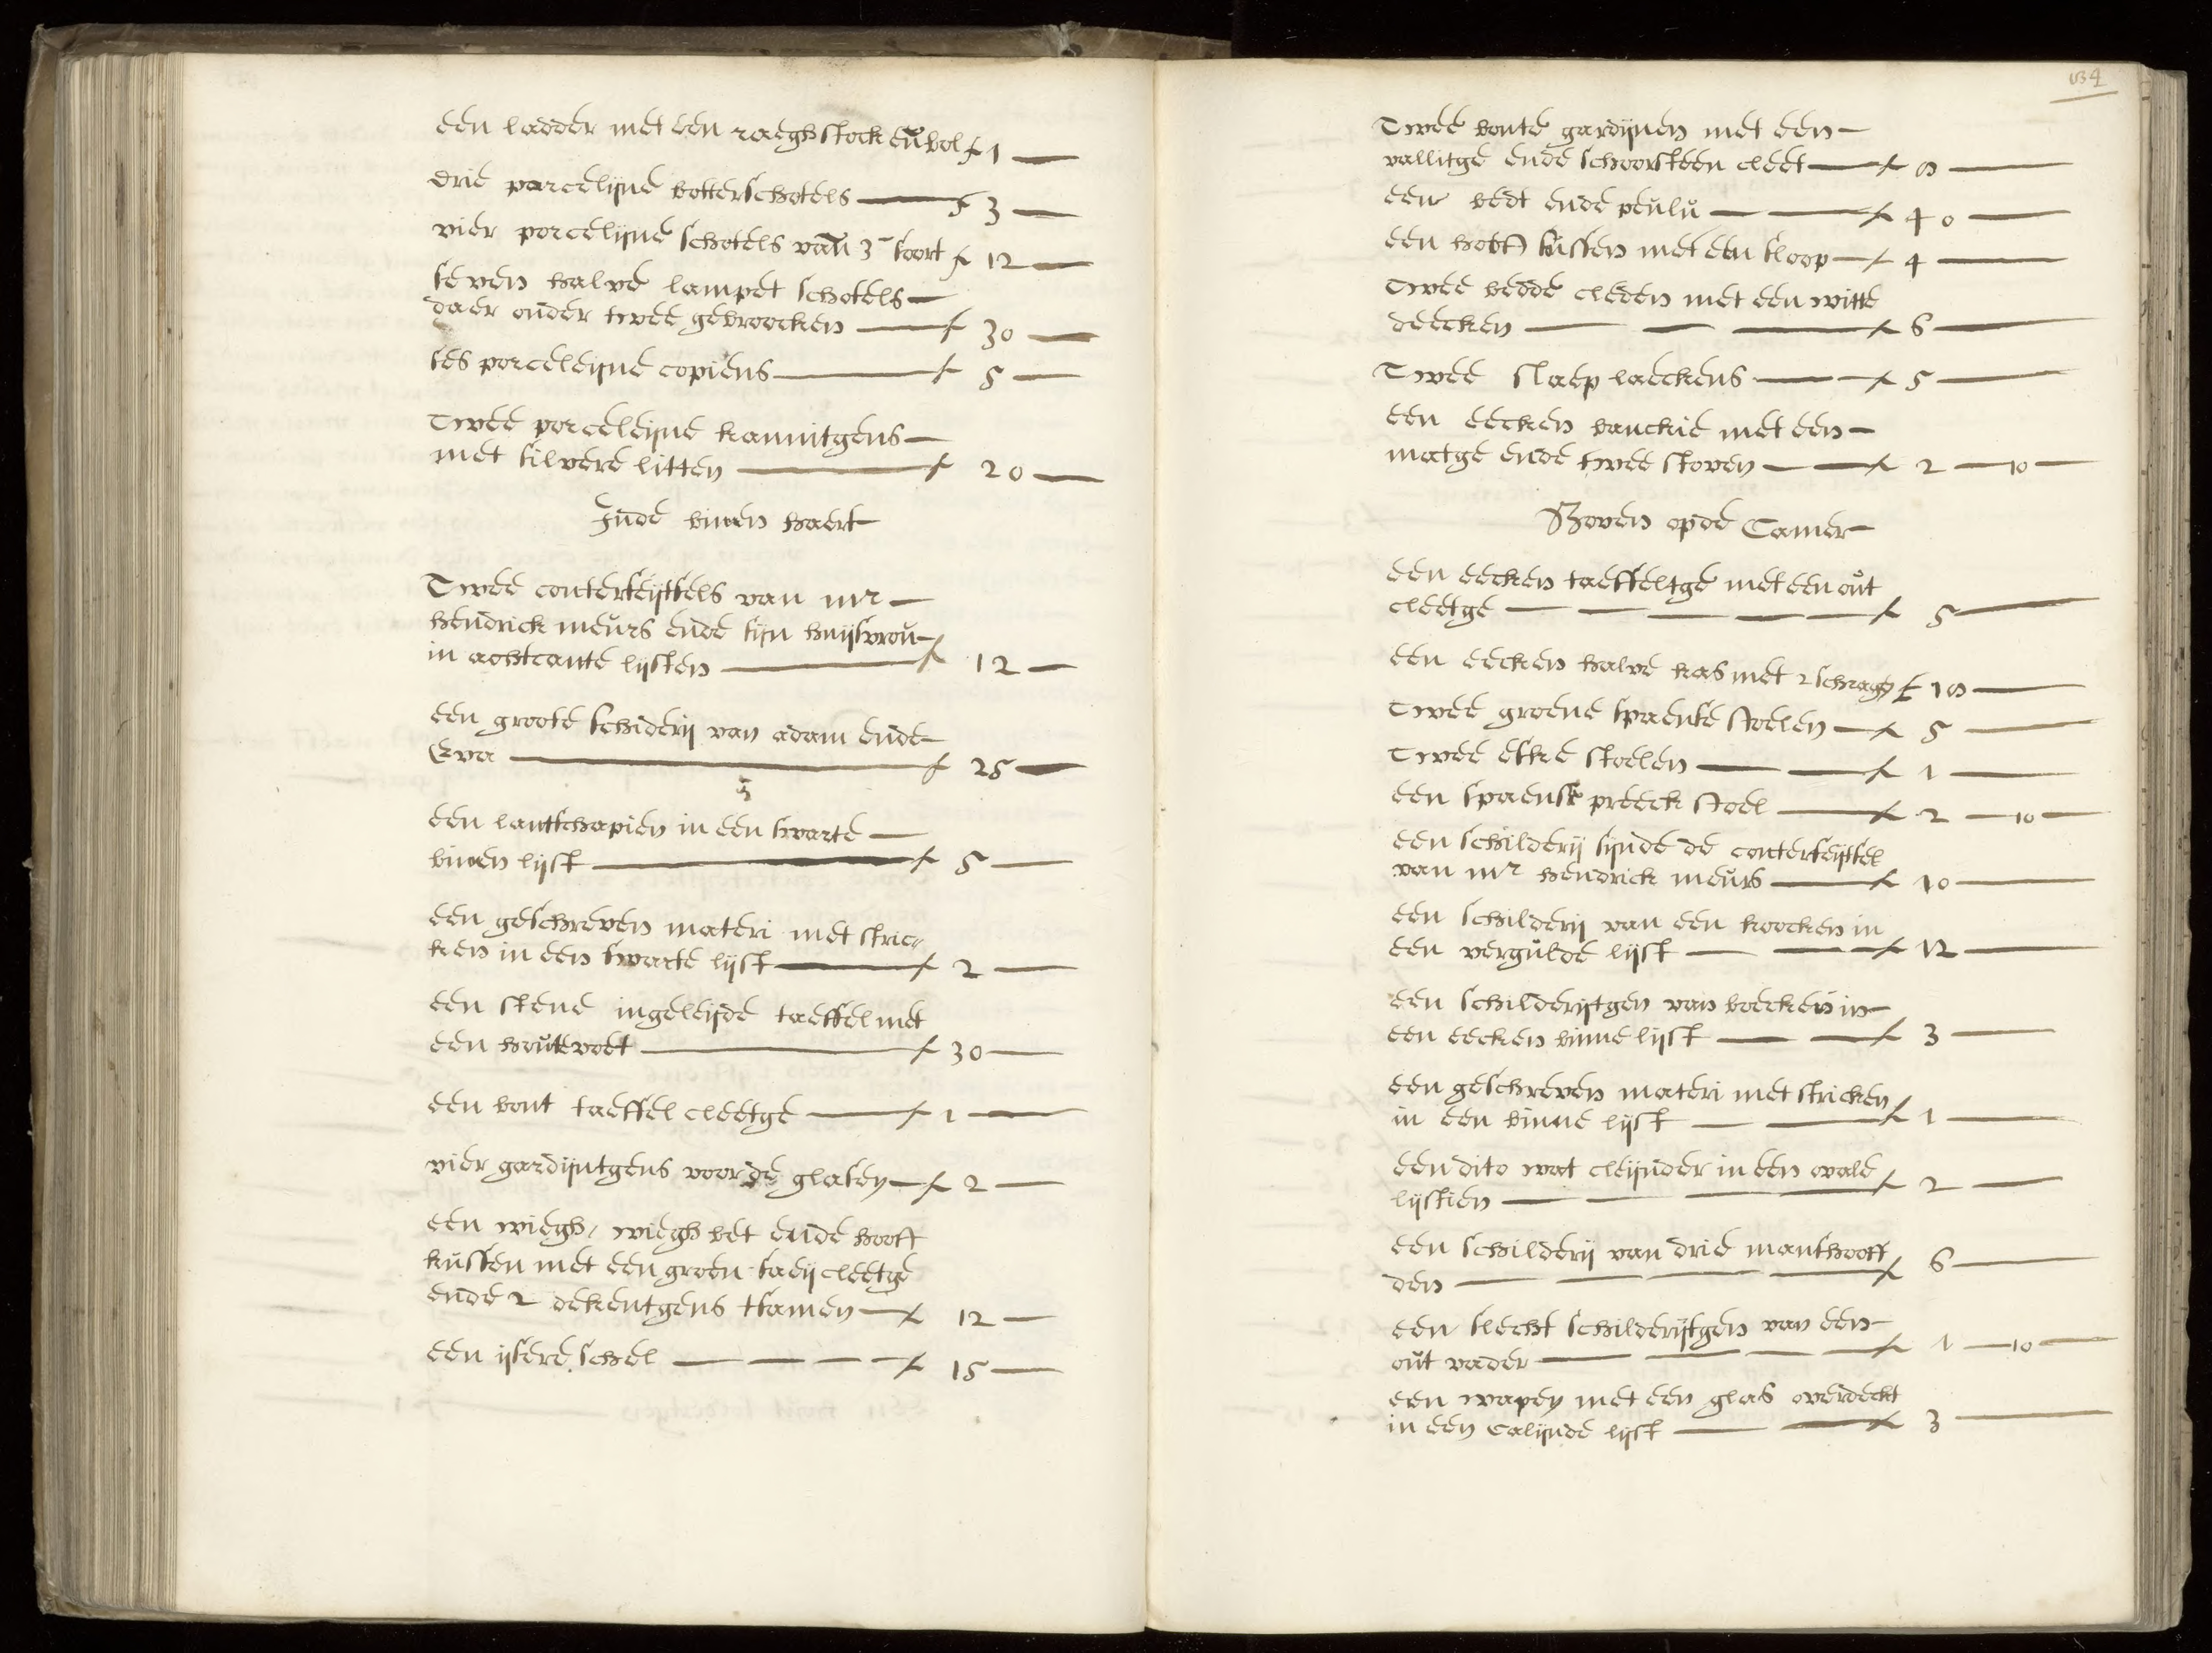 een ladder met een raeghstock en bol f 1 —
drie porcelijne botterschotels — f 3 —
vier porcelijne schotels van 3e soort f 12 —
seven halve lampet schotels —
daer onder twee gebroocken — f 30 —
ses porceleijne copiens — f 5 —
Twee porceleijne kannitgens —
met silvere litten — f 20 —
Inde binnen haert
Twee conterfeijtsels van mr —
hendrick meurs ende sijn huijsvrou
in achtcante lijsten — f 12 —
een groote schiderij van adam ende
Eva — f 25 —
een lantschapien in een swarte —
binnen lijst — f 5 —
een geschreven materi met stric„
ken in een swarte lijst — f 2 —
een stene ingeleijde taeffel met
een houte voet — f 30 —
een bont taeffel cleetge — f 1 —
vier gardijntgens voor de glasen — f 2 —
een wiegh, wiegh bet ende hooft
kussen met een groen saeij cleetge
ende 2 dekentgens tsamen — f 12 —
een ijsere schel — — — f 15 —
134
Twee bonte gardijnen met een —
vallitge ende schoorsteen cleet — f 8 —
een bedt ende peulu — — f 40 —
een hooft kussen met een sloop — f 4 —
Twee bedde cleden met een witte
deecken — — — f 6 —
Twee slaep laeckens — — f 5 —
een eecken banckie met een —
matge ende twee stoven — — f 2 — 10 —
Boven opde Camer
een eecken taeffeltge met een out
cleetge — — — — f 5 —
een eecken halve kas met 2 schragen f 18 —
Twee groene spaense stoelen — f 5 —
Twee eske stoelen — — f 1 —
een spaense preeck stoel — f 2 — 10 —
een schilderij sijnde de conterfeijtsel
van mr hendrick meurs — f 10 —
een schilderij van een koocken in
een vergulde lijst — — f 12 —
een schilderijtgen van boecken in
een eecken binne lijst — — f 3 —
een geschreven materi met stricken
in een binne lijst — — f 1 —
een dito wat cleijnder in een ovale
lijstien — — — f 2 —
een schilderij van drie manshooff
den — — — — f 6 —
een slecht schilderijtgen van een
out vader — — — f 1 — 10 —
een wapen met een glas overdeckt
in een lijst — — f 3 —